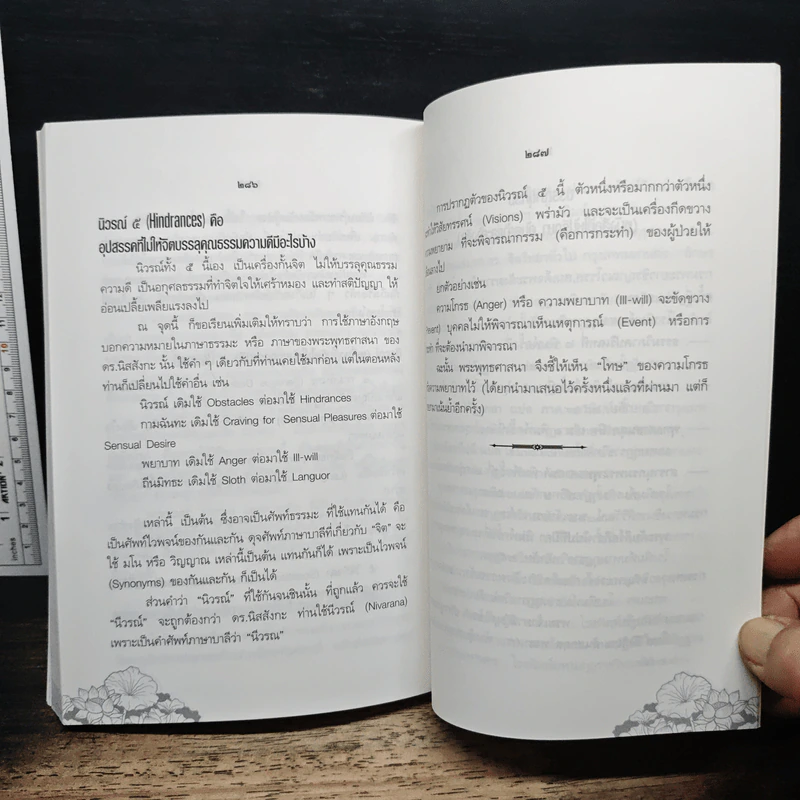 ๒๘๖
นิวรณ์ ๕ (Hindrances) คือ
อุปสรรคที่ไม่ให้จิตบรรลุคุณธรรมความดีมีอะไรบ้าง
นิวรณ์ทั้ง ๕ นี้เอง เป็นเครื่องกั้นจิต ไม่ให้บรรลุคุณธรรม
ความดี เป็นอกุศลธรรมที่ทำจิตใจให้เศร้าหมอง และทำสติปัญญา ให้
อ่อนเปลี้ยเพลียแรงลงไป
ณ จุดนี้ ก็ขอเรียนเพิ่มเติมให้ทราบว่า การใช้ภาษาอังกฤษ
บอกความหมายในภาษาธรรมะ หรือ ภาษาของพระพุทธศาสนา ของ
ดร.นิสสังกะ นั้น ใช้คำ ๆ เดียวกับที่ท่านเคยใช้มาก่อน แต่ในตอนหลัง
ท่านก็เปลี่ยนไปใช้คำอื่น เช่น
นิวรณ์ เดิมใช้ Obstacles ต่อมาใช้ Hindrances
กามฉันทะ เดิมใช้ Craving for Sensual Pleasures ต่อมาใช้
Sensual Desire
พยาบาท เดิมใช้ Anger ต่อมาใช้ Ill-will
ถีนมิทธะ เดิมใช้ Sloth ต่อมาใช้ Languor
เหล่านี้ เป็นต้น ซึ่งอาจเป็นศัพท์ธรรมะ ที่ใช้แทนกันได้ คือ
เป็นศัพท์ไวพจน์ของกันและกัน ดุจศัพท์ภาษาบาลีที่เกี่ยวกับ "จิต" จะ
ใช้ มโน หรือ วิญญาณ เหล่านี้เป็นต้น แทนกันก็ได้ เพราะเป็นไวพจน์
(Synonyms) ของกันและกัน ก็เป็นได้
ส่วนคำว่า "นิวรณ์" ที่ใช้กันจนชินนั้น ที่ถูกแล้ว ควรจะใช้
"นีวรณ์" จะถูกต้องกว่า ดร.นิสสังกะ ท่านใช้นีวรณ์ (Nivarana)
เพราะเป็นคำศัพท์ภาษาบาลีว่า "นีวรณ"
๒๘๗
การปรากฏตัวของนิวรณ์ ๕ นี้ ตัวหนึ่งหรือมากกว่าตัวหนึ่ง
ให้วิสัยทรรศน์ (Visions) พร่ามัว และจะเป็นเครื่องกีดขวาง
ความพยายาม ที่จะพิจารณากรรม (คือการกระทำ) ของผู้ป่วยให้
ลงไป
ยกตัวอย่างเช่น
ความโกรธ (Anger) หรือ ความพยาบาท (Ill-will) จะขัดขวาง
บุคคลไม่ให้พิจารณาเห็นเหตุการณ์ (Event) หรือการ
ที่จะต้องนำมาพิจารณา
ฉะนั้น พระพุทธศาสนา จึงชี้ให้เห็น "โทษ" ของความโกรธ
ความพยาบาทไว้ (ได้ยกนำมาเสนอไว้ครั้งหนึ่งแล้วที่ผ่านมา แต่ก็
มาเน้นย้ำอีกครั้ง)
inches